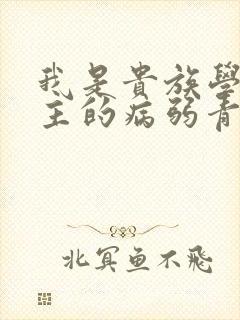 我是貴族學
主的病弱青
北冥鱼不飛